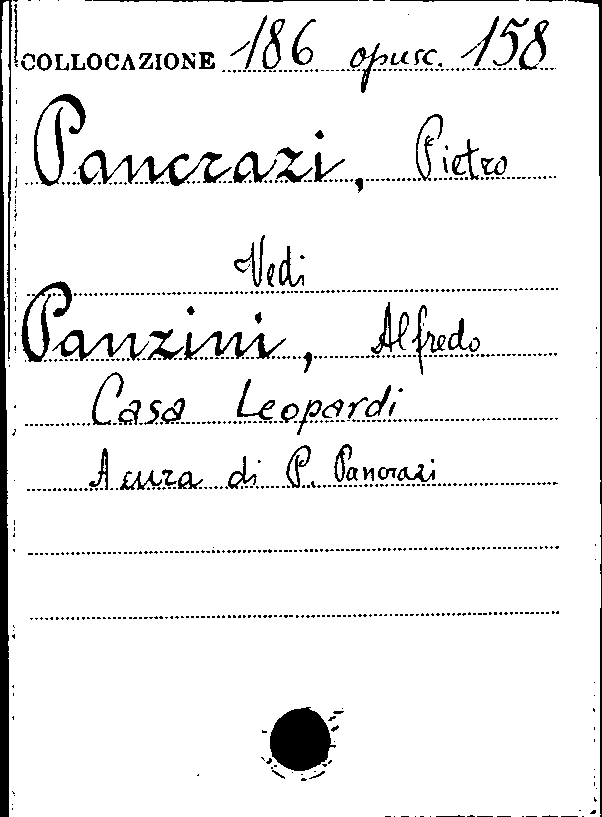 COLLOCAZIONE 186 opusc. 158
Pancrazi, Pietro
Vedi
Panzini, Alfredo
Casa Leopardi
A cura di P. Pancrazi